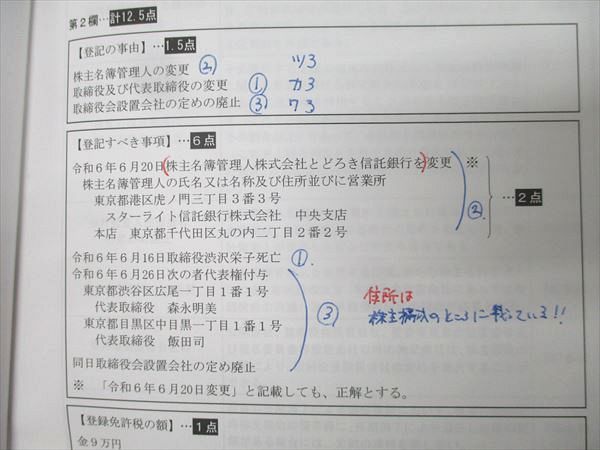 第2欄…計12.5点
【登記の事由】…1.5点
株主名簿管理人の変更 ② ツ3
取締役及び代表取締役の変更 ① カ3
取締役会設置会社の定めの廃止 ③ ワ3
【登記すべき事項】…6点
令和6年6月20日(株主名簿管理人株式会社とどろき信託銀行を)変更 ※
株主名簿管理人の氏名又は名称及び住所並びに営業所
東京都港区虎ノ門三丁目3番3号
…2点
スターライト信託銀行株式会社 中央支店 ②
本店 東京都千代田区丸の内二丁目2番2号
令和6年6月16日取締役渋沢栄子死亡 ①
令和6年6月26日次の者代表権付与
東京都渋谷区広尾一丁目1番1号
住所は
代表取締役 森永明美 ③
株主 のところに載っている!!
東京都目黒区中目黒一丁目1番1号
代表取締役 飯田司
同日取締役会設置会社の定め廃止
※ 「令和6年6月20日変更」と記載しても、正解とする。
【登録免許税の額】…1点
金9万円